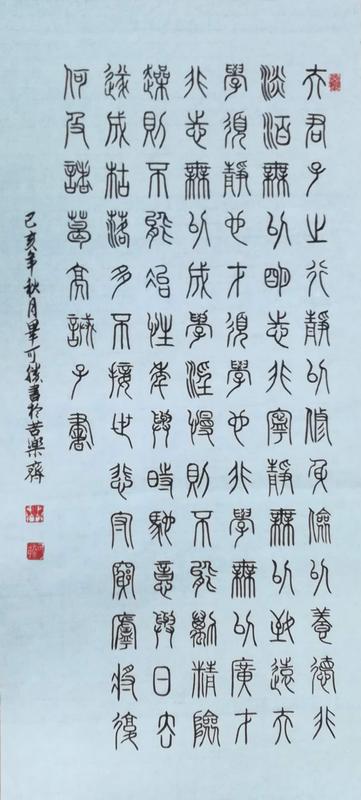 夫君子之行靜以修身儉以養德非
淡泊無以明志非寧靜無以致遠夫
學須靜也才須學也非學無以廣才
非志無以成學淫慢則不能勵精險
躁則不能冶性年與時馳意與日去
遂成枯落多不接世悲守窮廬將復
何及諸葛亮誡子書
己亥年秋月畢可勝書於苦樂齋